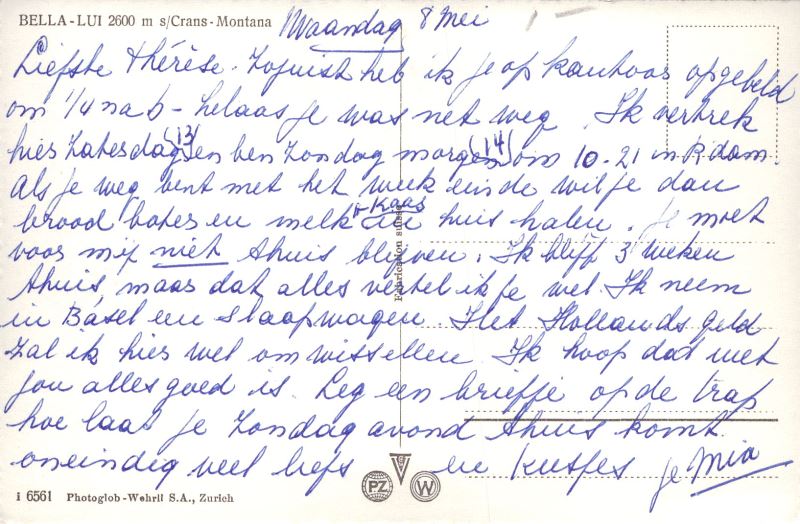 BELLA-LUI 2600 m s/Crans-Montana
Maandag 8 Mei
Liefste Thérèse. Zojuist heb ik je op kantoor opgebeld
om 1/4 na 6 - helaas je was net weg. Ik vertrek
hier Zaterdag (13) en ben Zondag morgen (14) om 10.21 in R'dam.
Als je weg bent met het week einde wil je dan
brood boter en melk + Kaas in huis halen. Je moet
voor mij niet thuis blijven. Ik blijf 3 weken
thuis, maar dat alles vertel ik je wel. Ik neem
in Basel een Slaapwagen. Het Hollands geld
zal ik hier wel omwissellen. Ik hoop dat met
jou alles goed is. Leg een briefje op de trap
hoe laat je Zondag avond thuis komt.
oneindig veel liefs en Kusjes je Mia
Fabrication suisse
i 6561 Photoglob-Wehrli S.A., Zurich
PZ
W